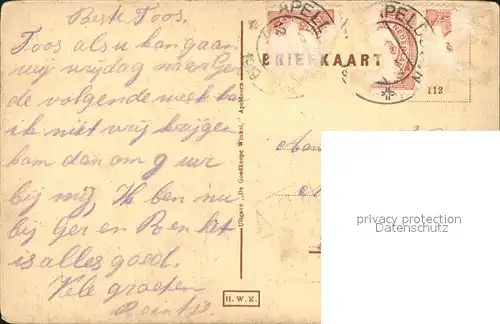 Beste Toos.
Toos als u kan gaan
wij vrijdag naar Ger
de volgende week kan
ik niet vrij krijgen
kom dan om 9 uur
bij mij, Ik ben nu
bij Ger en Ben het
is alles goed.
Vele groeten
Reintje.
Uitgave „De Goedkoope Winkel", Apeldoorn
H. W. K.
BRIEFKAART
APELD
112
Aan
privacy protection
Datenschutz